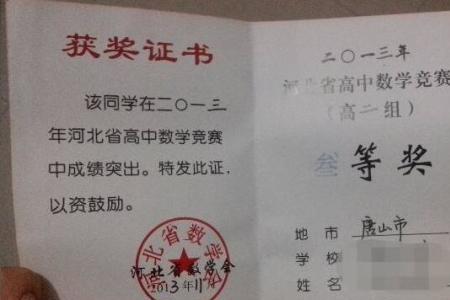 获奖证书
该同学在二〇一三
年河北省高中数学竞赛
中成绩突出。特发此证,
以资鼓励。
河北省数学会
2013年11月
二〇一三年
河北省高中数学竞赛
(高二组)
叁等奖
地市 唐山市
学校
姓名